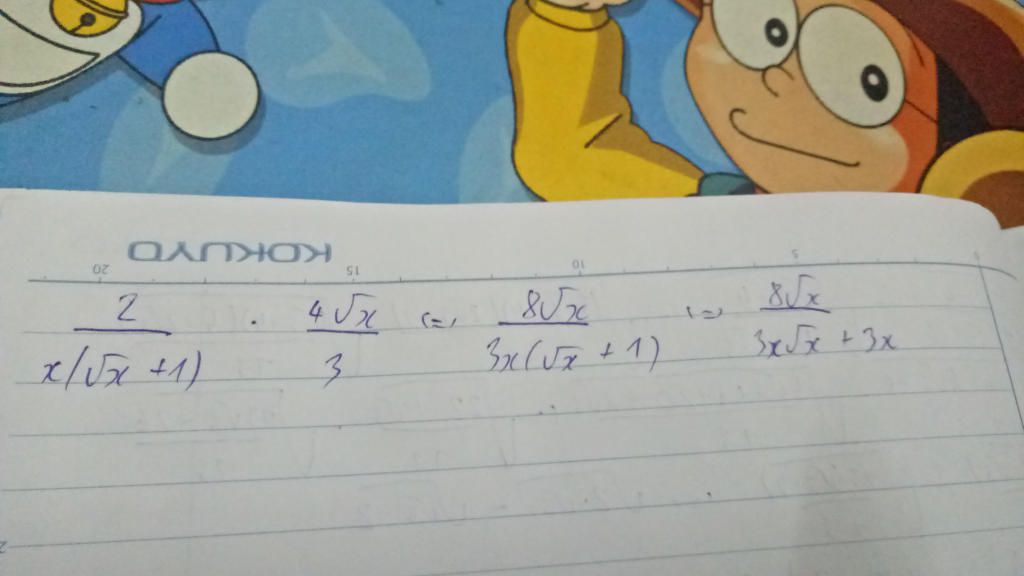 KOKUYO
20 15 10 5
2 / x(√x + 1) . 4√x / 3 (=) 8√x / 3x(√x + 1) (=) 8√x / 3x√x + 3x